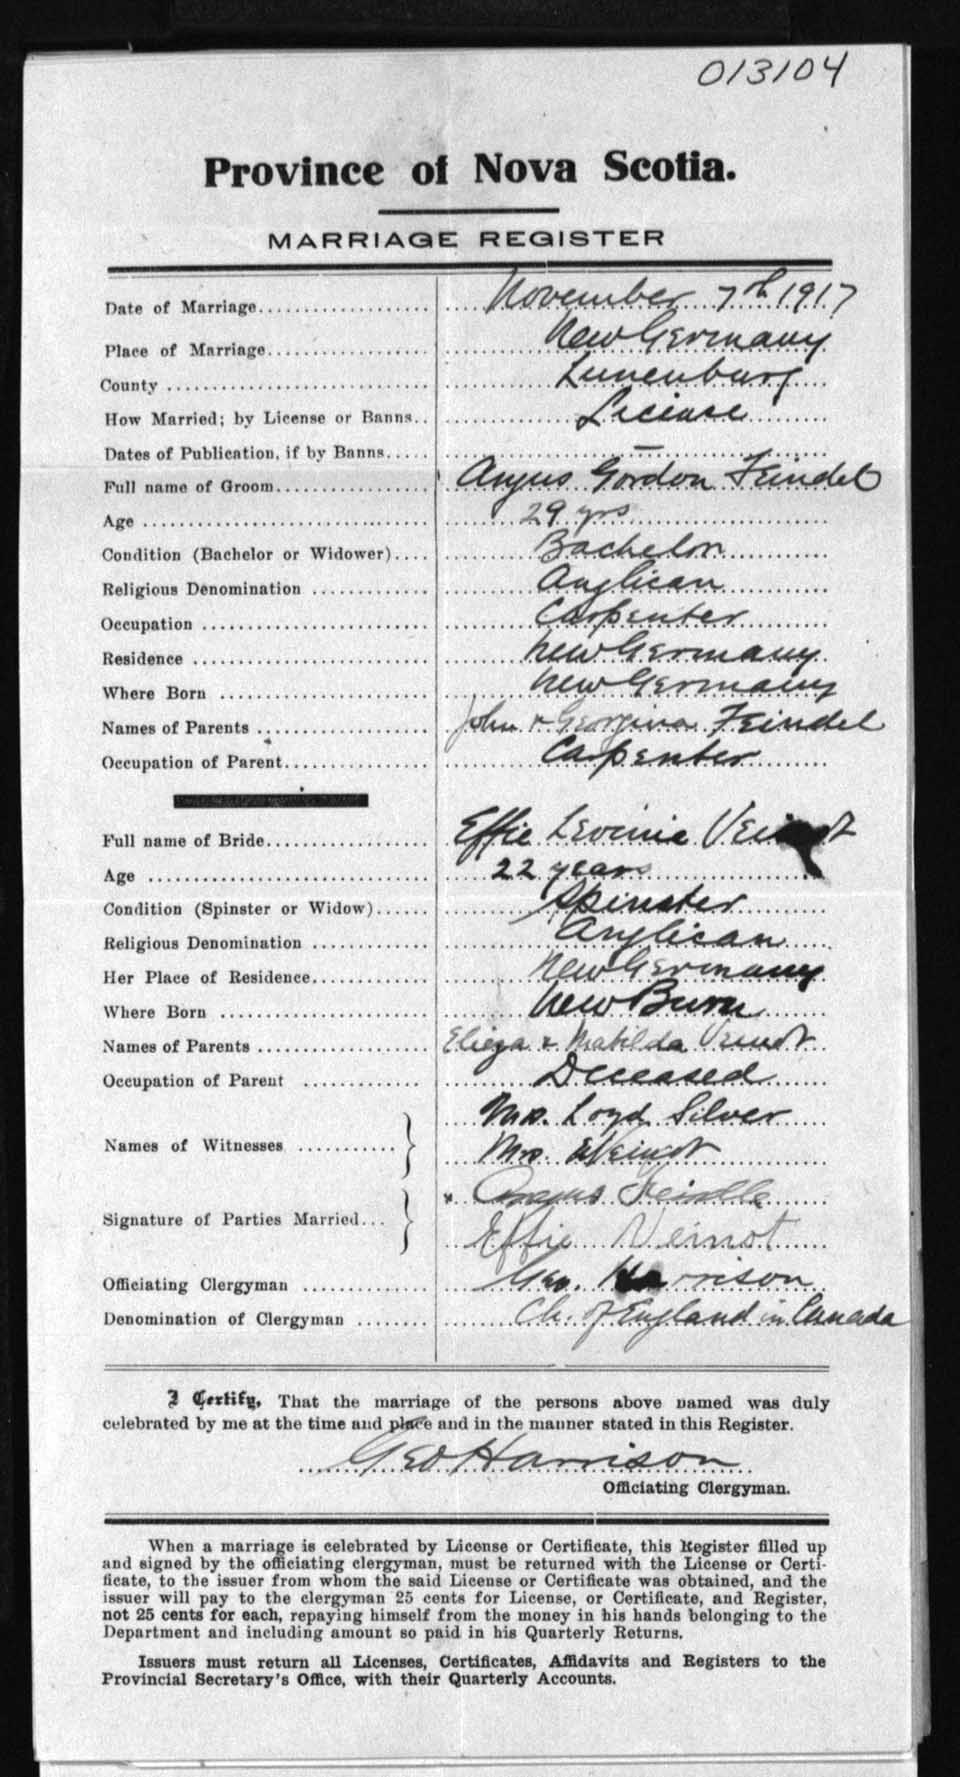 013104
Province of Nova Scotia.
MARRIAGE REGISTER
Date of Marriage.................... November 7th 1917
Place of Marriage................... New Germany
County .............................. Lunenburg
How Married; by License or Banns.. License
Dates of Publication, if by Banns..... —
Full name of Groom.................. Angus Gordon Feindel
Age ................................. 29 yrs
Condition (Bachelor or Widower).... Bachelor
Religious Denomination ............. Anglican
Occupation .......................... Carpenter
Residence ........................... New Germany
Where Born ........................ New Germany
Names of Parents .................... John & Georgina Feindel
Occupation of Parent................. Carpenter
Full name of Bride................... Effie Levinie Veinot
Age ................................. 22 years
Condition (Spinster or Widow)...... Spinster
Religious Denomination ............. Anglican
Her Place of Residence............. New Germany
Where Born ........................ New Burn
Names of Parents .................... & Matilda Veinot
Occupation of Parent .............. Deceased
Mrs. Loyd Silver
Names of Witnesses ...........
Mrs. Veinot
x Angus Feindle
Signature of Parties Married...
Effie Veinot
Officiating Clergyman ............... Geo. Harrison
Denomination of Clergyman ........ Ch. of England in Canada
I Certify, That the marriage of the persons above named was duly
celebrated by me at the time and place and in the manner stated in this Register.
Geo Harrison
Officiating Clergyman.
When a marriage is celebrated by License or Certificate, this Register filled up
and signed by the officiating clergyman, must be returned with the License or Certi-
ficate, to the issuer from whom the said License or Certificate was obtained, and the
issuer will pay to the clergyman 25 cents for License, or Certificate, and Register,
not 25 cents for each, repaying himself from the money in his hands belonging to the
Department and including amount so paid in his Quarterly Returns.
Issuers must return all Licenses, Certificates, Affidavits and Registers to the
Provincial Secretary's Office, with their Quarterly Accounts.